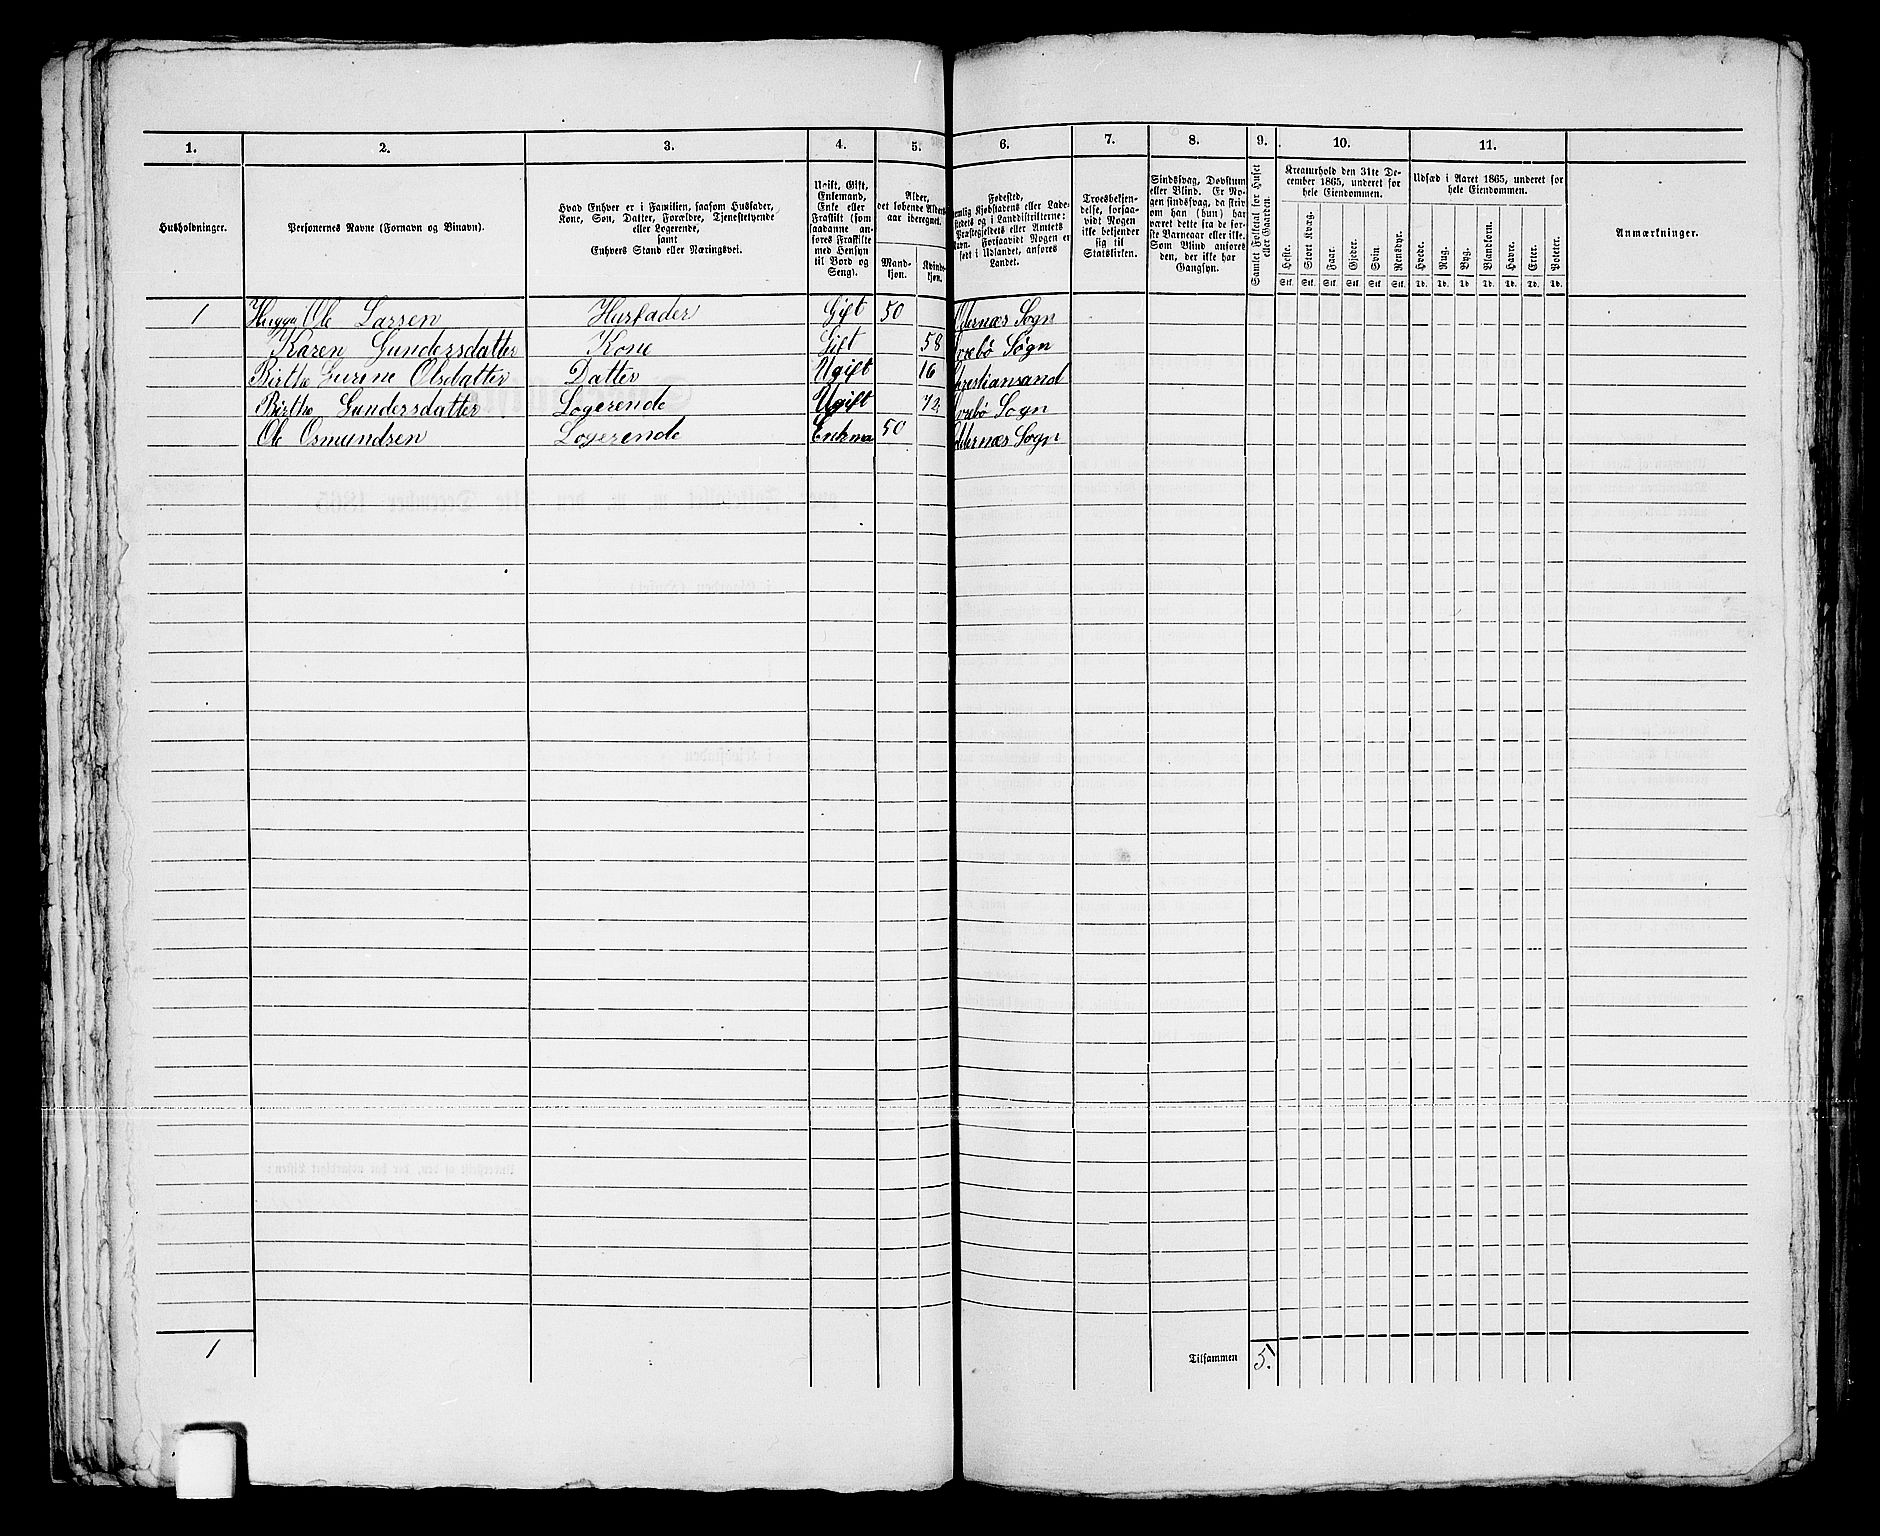 1. 2. 3. 4. 5. 6. 7. 8. 9. 10. 11.
Husholdninger.
Personernes Navne (Fornavn og Binavn).
Hvad Enhver er i Familien, saasom Husfader, Kone, Søn, Datter, Forældre, Tjenestetyende eller Logerende, samt Enhvers Stand eller Næringsvei.
Ugift, Gift, Enkemand, Enke eller Fraskilt (som saadanne anføres Fraskilte med Hensyn til Bord og Seng).
Alder, det løbende Alders aar iberegnet.
Mandkjøn. Kvindekjøn.
Fødested, Kjøbstadens eller Ladestedets og i Landdistrikterne: Præstegjeldets eller Amtets Navn. Forsaavidt Nogen er født i Udlandet, anføres Landet.
Troesbekjendelse, forsaavidt Nogen ikke bekjender sig til Statskirken.
Sindssvag, Døvstum eller Blind. Er Nogen sindssvag, da skriv om han (hun) har været dette fra de første Barneaar eller ikke. Som Blind anføres den, der ikke har Gangsyn.
Samlet Folketal for Huset eller Gaarden.
Kreaturhold den 31te December 1865, underet for hele Eiendommen.
Heste. Stort Kvæg. Faar. Gjeder. Svin. Rensdyr.
Stk. Stk. Stk. Stk. Stk. Stk.
Udsæd i Aaret 1865, underet for hele Eiendommen.
Hvede. Rug. Byg. Blandkorn. Havre. Erter. Poteter.
Td. Td. Td. Td. Td. Td. Td.
Anmærkninger.
1 Ole Larsen Husfader Gift 50 Sogn
Karen Gundersdatter Kone Gift 58 Sogn
Birthe Gurine Olsdatter Datter Ugift 16 Christiansand
Birthe Gundersdatter Logerende Ugift 72 Sogn
Ole Osmundsen Logerende Enkma 50 Sogn
1 Tilsammen 5.